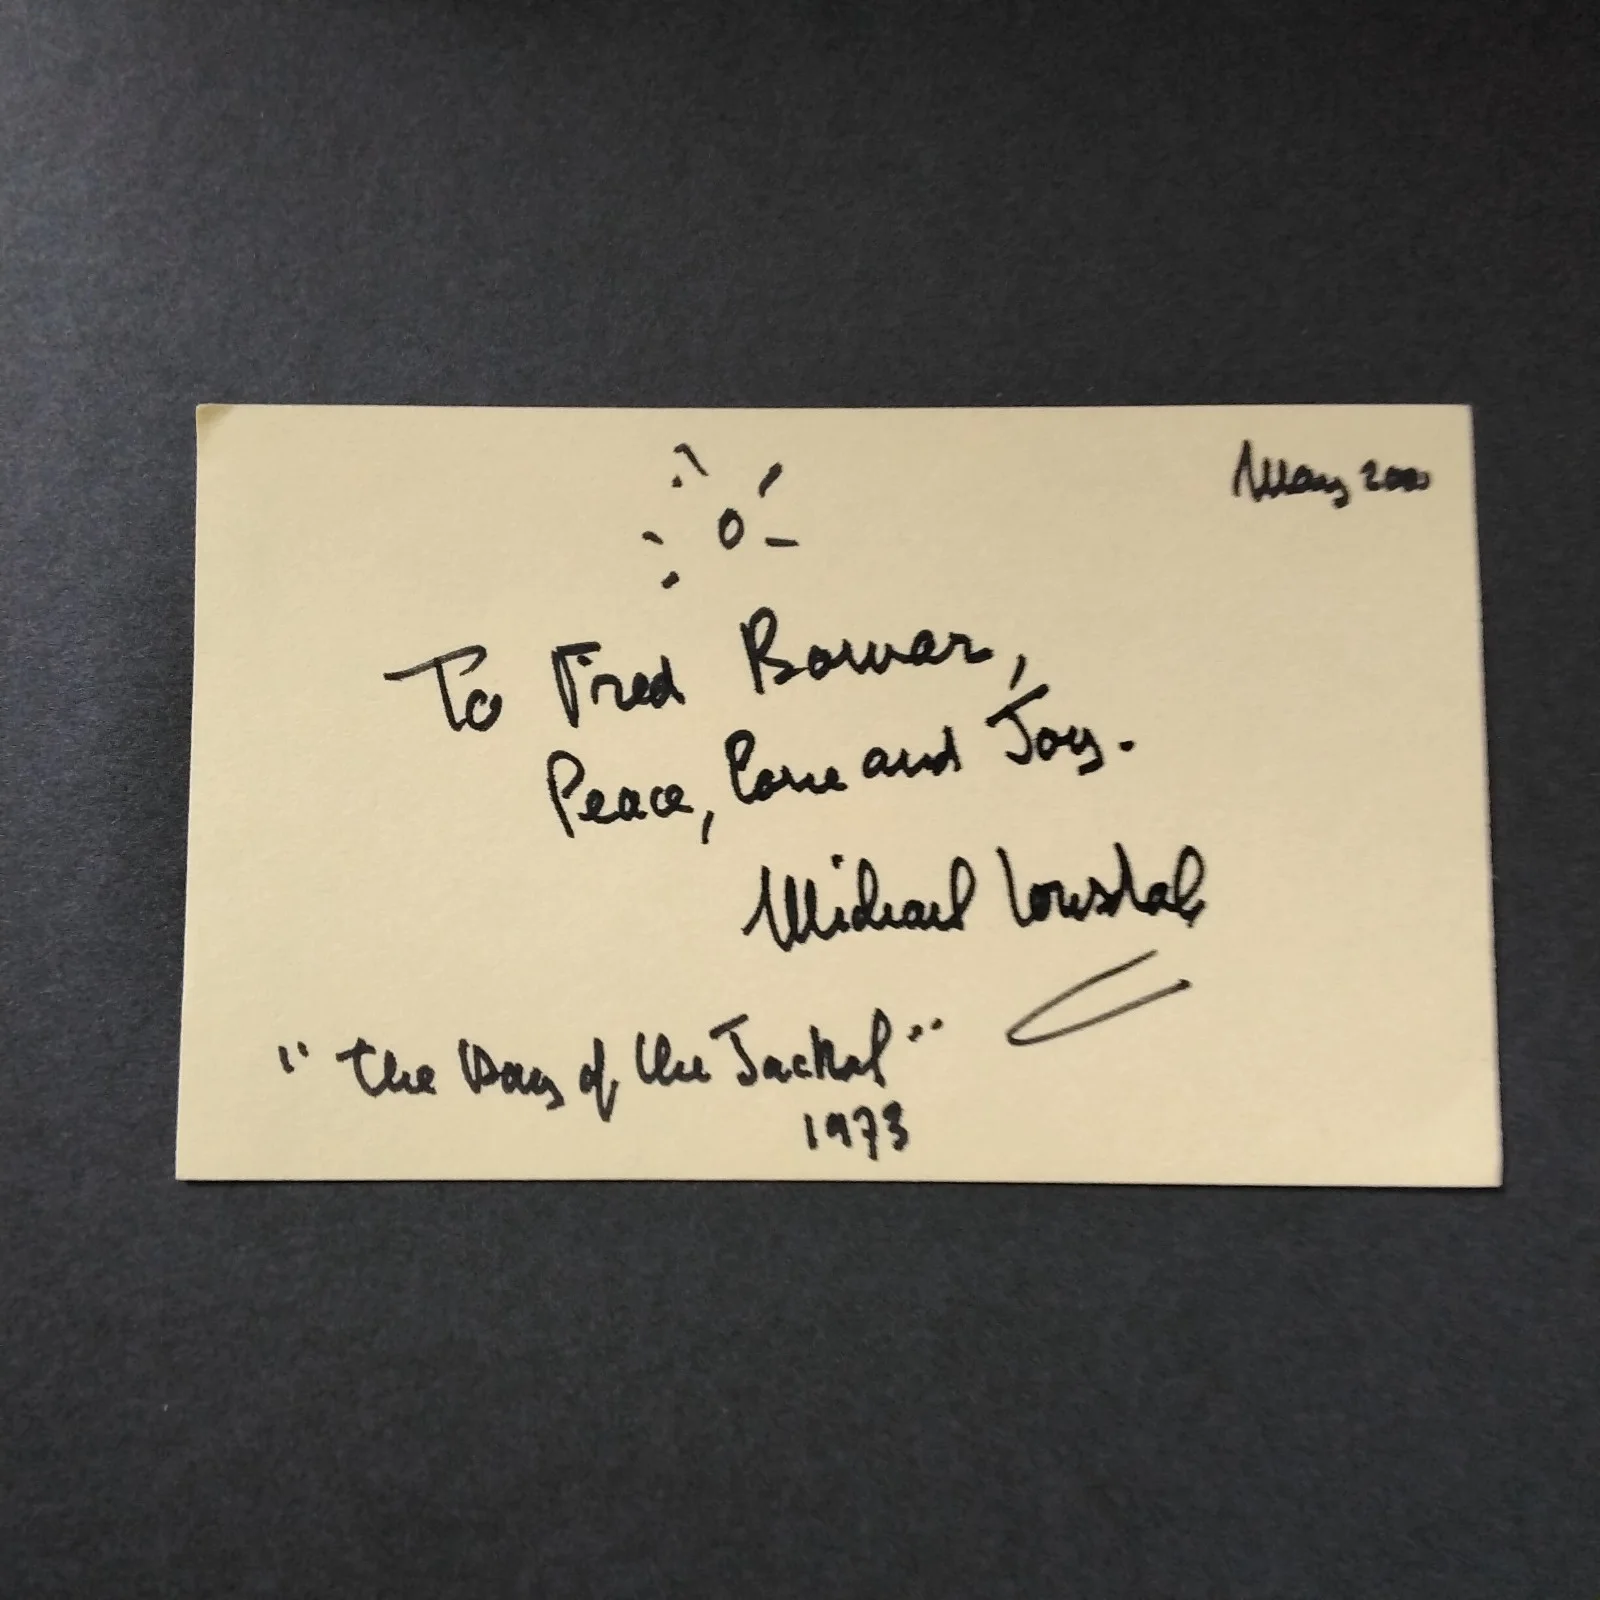 May 2000
To Fred Bowar,
Peace, Love and Joy.
Michael Lonsdale
"The Day of the Jackal"
1973